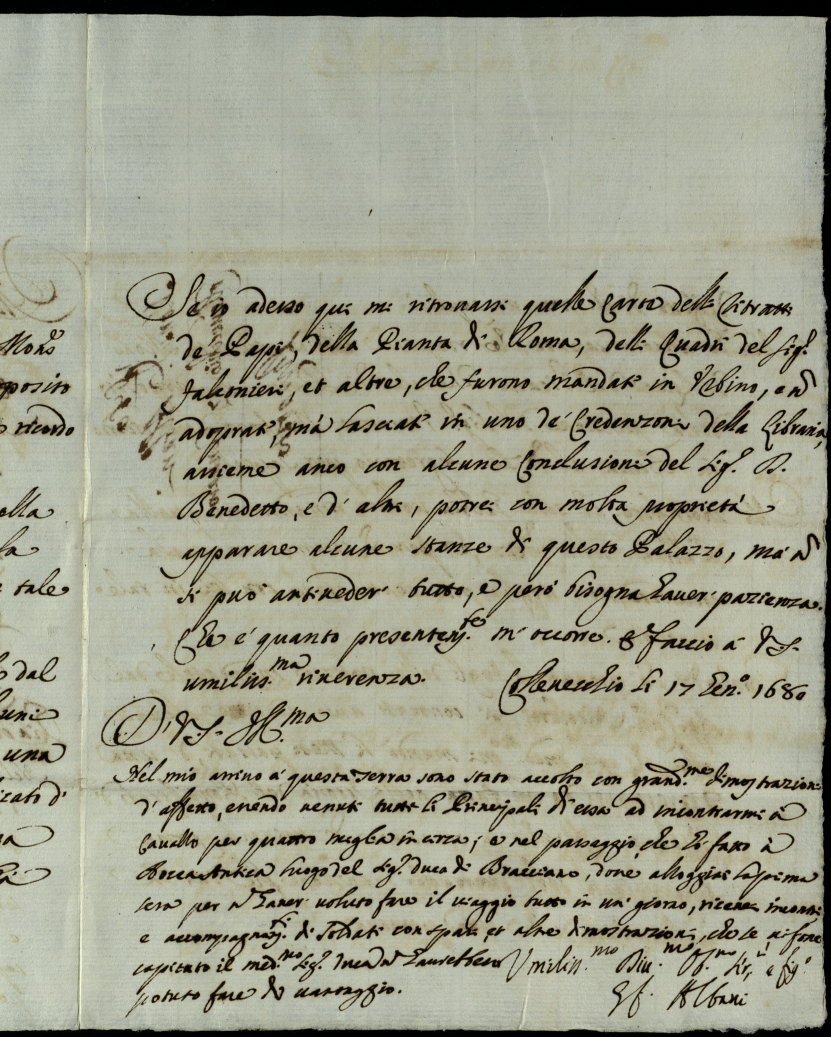 Mons.re
proposito
ricordo
ella
la
tale
dal
una
zato d'
Se io adesso qui mi ritrovassi quelle Carte delli Ritratti
de Papi, della Pianta di Roma, delli Quadri del Sig.r
Falconieri, et altre, che furono mandate in Urbino, e ñ
adoprate, mà lasciate in uno de' Credenzoni della Libraria,
assieme anco con alcune Conclusioni del Sig.r D.
Benedetto, e d' altri, potrei con molta proprietà
apparare alcune stanze di questo Palazzo, mà ñ
si può antivedere tutto, e però bisogna haver pazienza.
Che è quanto presentem.te m' occorre. E faccio à V.S.
umiliss.ma riverenza. Collevecchio li 17 Gen.o 1680
Di V.S. Ill.ma
Nel mio arrivo à questa Terra sono stato accolto con grand.me dimostrazioni
d' affetto, essendo venuti tutti li Principali di essa ad incontrarmi à
Cavallo per quattro miglia in circa; e nel passaggio, che hò fatto à
Rocca Antica luogo del Sig.r Duca di Bracciano, dove alloggiai la prima
sera per ñ haver voluto fare il viaggio tutto in un giorno, ricevei incontri
e accompagnam.ti di Soldati con spari, et altre dimostrazioni, che se vi fosse
capitato il med.mo Sig.r Duca ñ haurebbero
potuto fare di vantaggio.
Umiliss.mo Div.mo Obb.mo Ser.e e fig.o
Gf. Albani